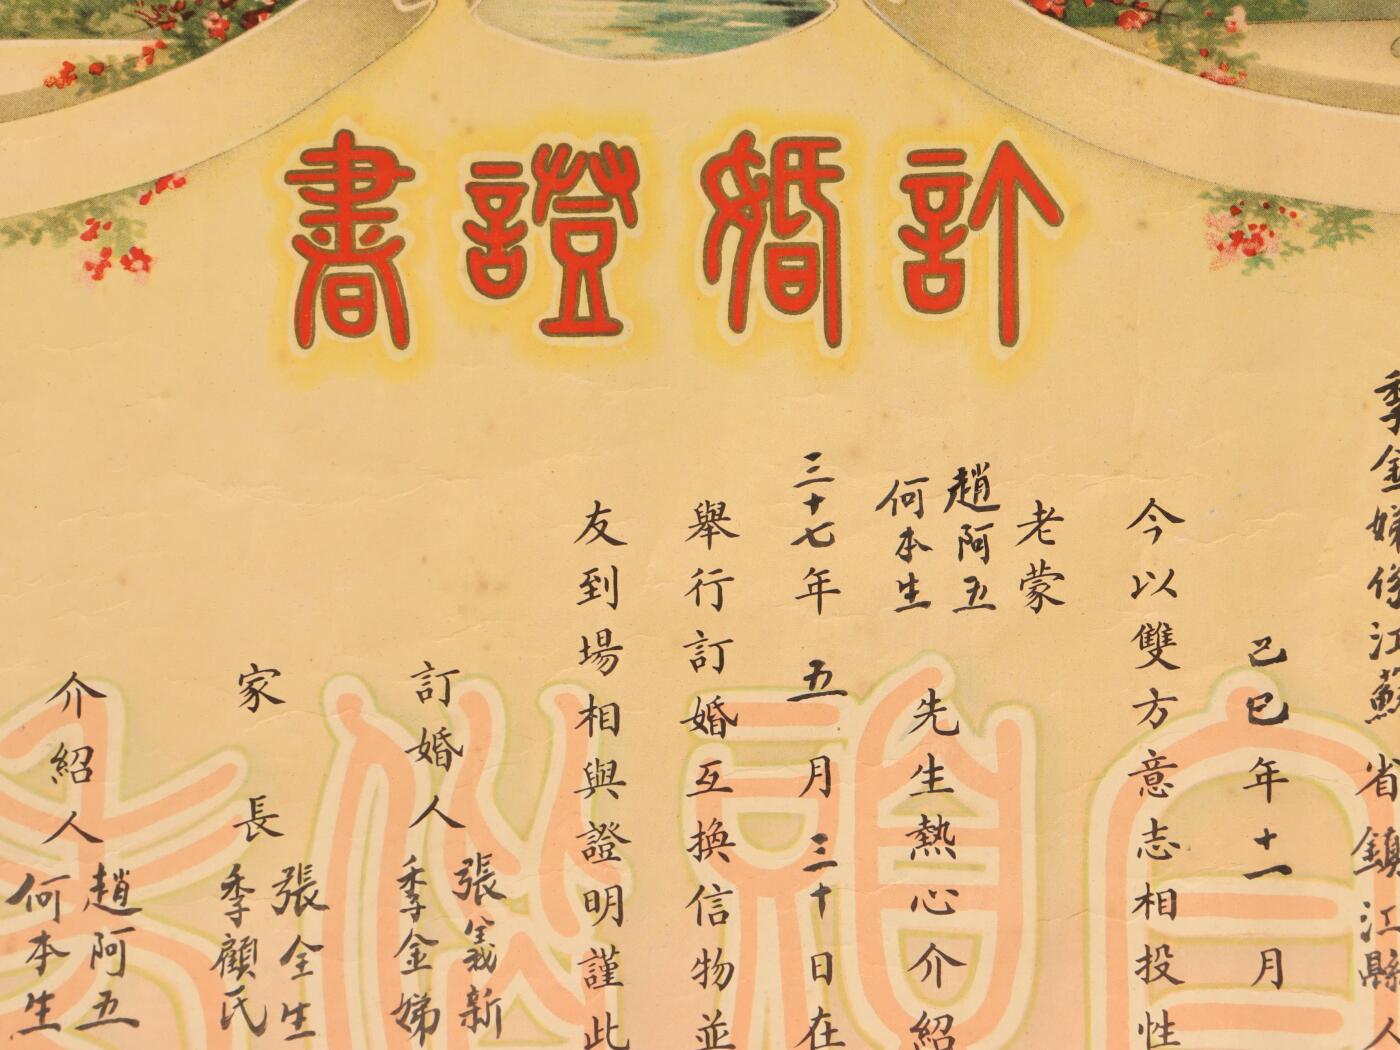 訂婚證書
季金娣係江蘇省鎮江縣人
己巳年十一月
今以雙方意志相投性
老蒙
趙阿五
何本生
先生熱心介紹
三十七年五月三十日在
舉行訂婚互換信物並
友到場相與證明謹此
訂婚人
張義新
季金娣
家長
張全生
季顧氏
介紹人
趙阿五
何本生